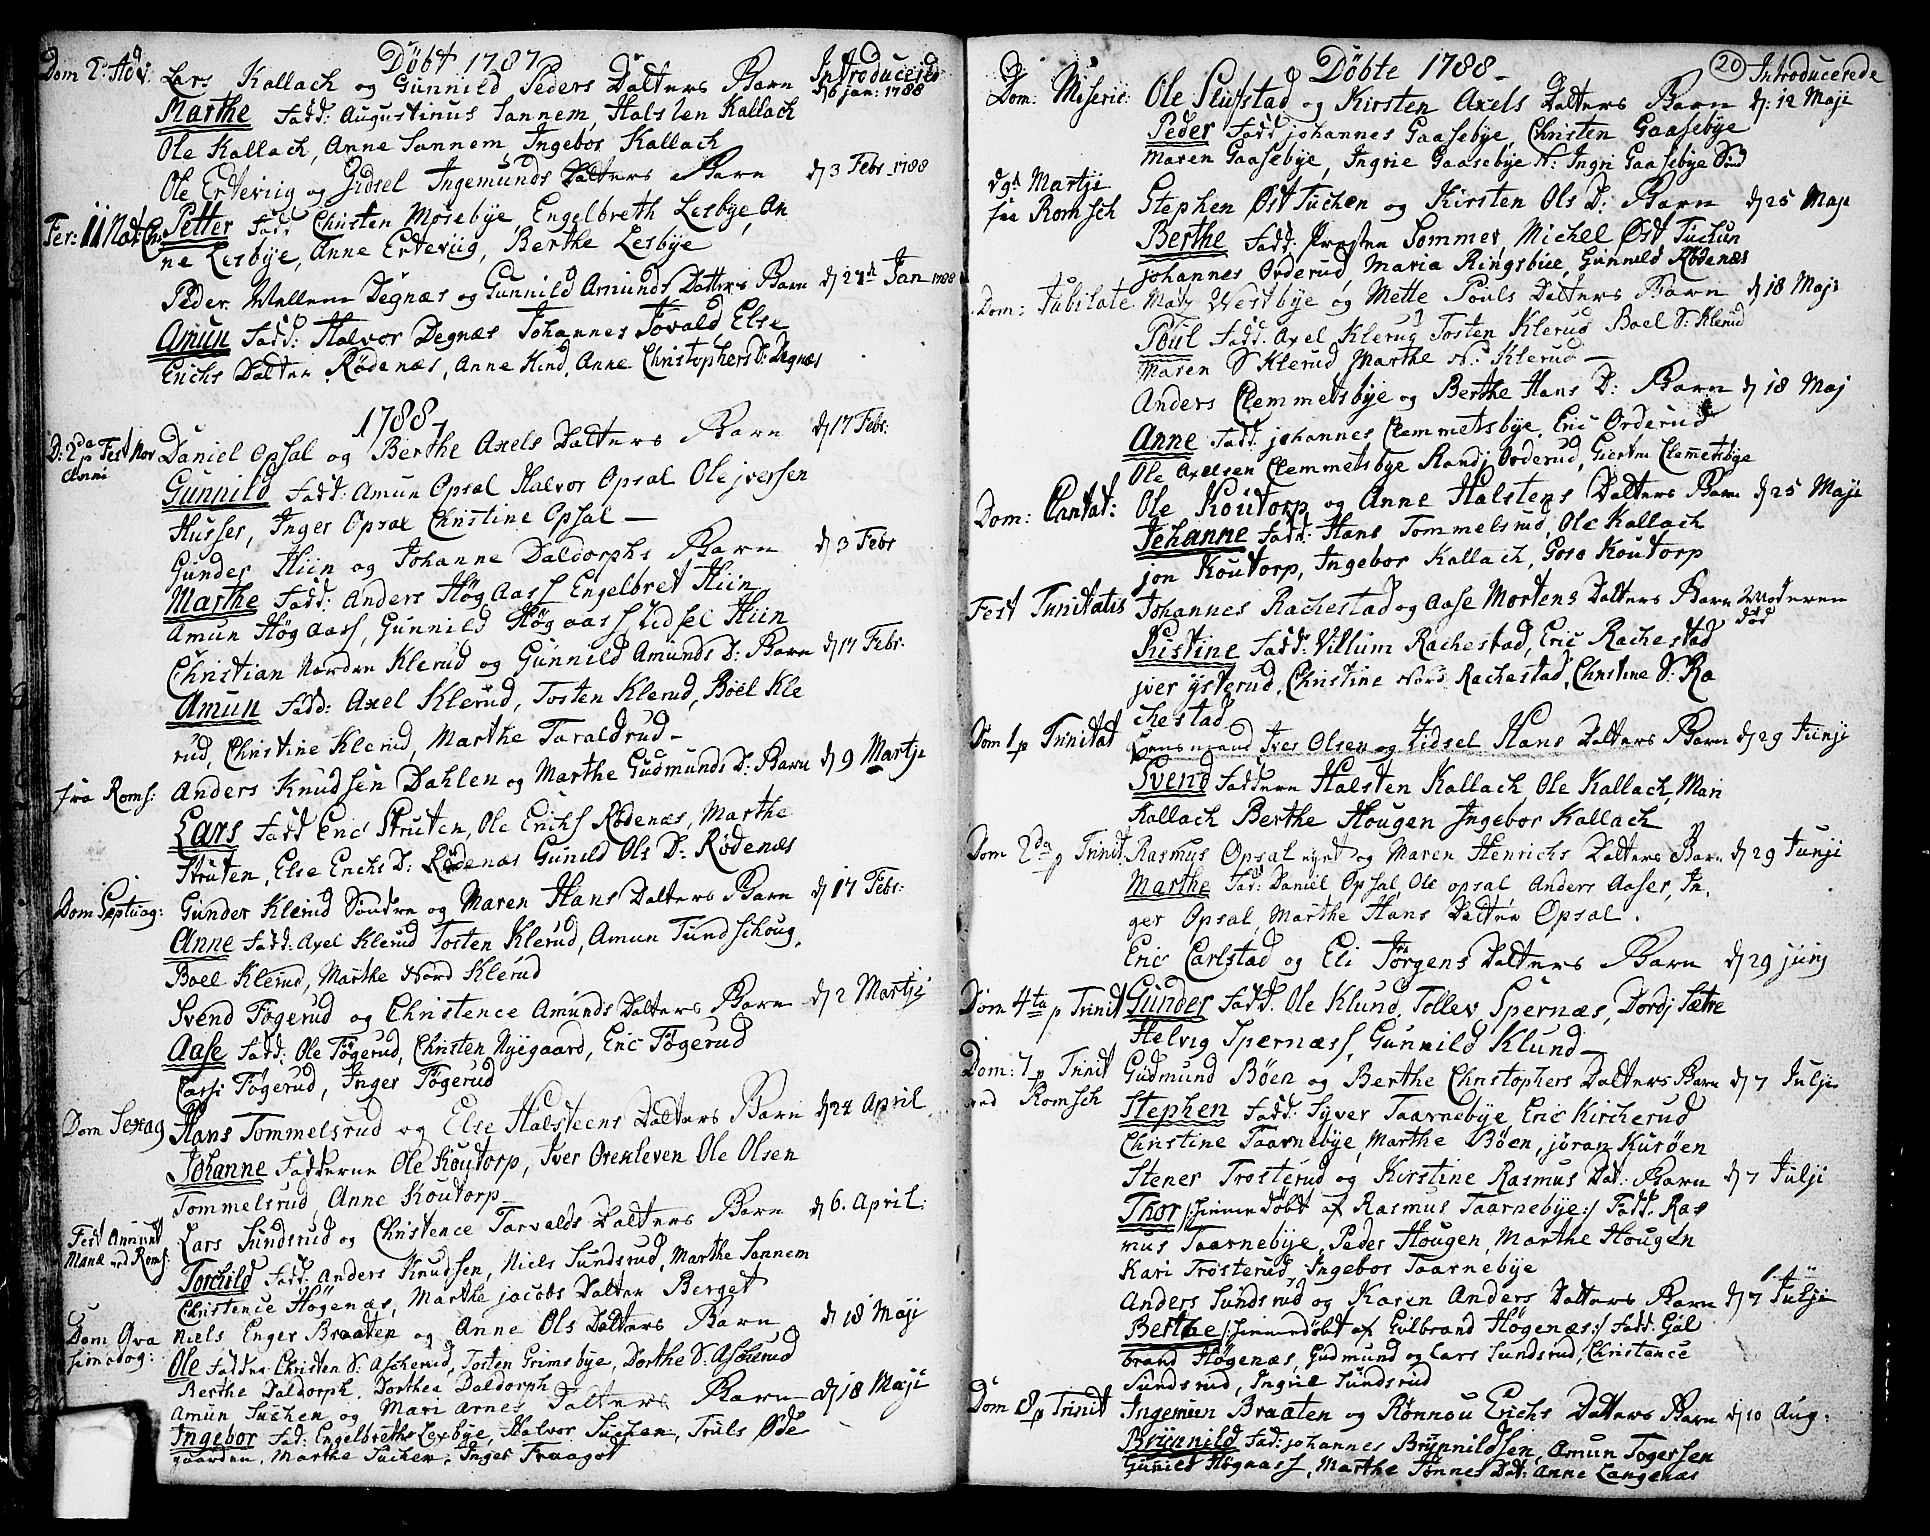 Døbt 1787
Introducered
Dom 2 Adv: Lars Kallach og Gunnild Peders Datters Barn d 6 jan: 1788
Marthe Fadd: Augustinus Sannem, Halsten Kallach
Ole Kallach, Anne Sannem Ingebor Kallach
Ole Erteviig og Zidsel Ingemunds Datters Barn d 3 Febr 1788
Fer: II Nat: Chr: Petter Fadd Christen Mosebye, Engelbreth Lesbye, An
ne Lesbye, Anne Erteviig, Berthe Lesbye
Peder Degnæs og Gunnild Amunds Datters Barn d 27de Jan 1788
Amun Fadd: Halvor Degnæs Johannes Else
Erichs Datter Rødenæs, Anne Hind, Anne Christophers D: Degnæs
1788
D: 2da p Fest Nov Anni Daniel Opsal og Berthe Axels Datters Barn d 17 Febr:
Gunnild Fadd: Amun Opsal Halvor Opsal Ole jversen
Husser, Inger Opsal Christine Opsal
Gunder Hiin og Johanne Daldorphs Barn d 3 Febr
Marthe Fadd: Anders Høg Aass Engelbret Hiin
Amun Høg aass, Gunnild Høg aass Zidsel Hiin
Christian Nordre Klerud og Gunnild Amunds D: Barn d 17 Febr:
Amun Fadd: Axel Klerud, Tosten Klerud, Boel Kle
rud, Christine Klerud, Marthe Taraldrud
fra Roms: Anders Knudsen Dahlen og Marthe Gudmunds D: Barn d 9 Martji
Lars Fadd Eric Struten, Ole Erichs Rødenæs, Marthe
Struten, Else Erichs D: Rødenæs Gunild Ols D: Rødenæs
Dom Septuag: Gunder Klerud Søndre og Maren Hans Datters Barn d 17 Febr:
Anne Fadd: Axel Klerud Tosten Klerud, Amun Tundschoug,
Boel Klerud, Marthe Nord Klerud
Svend Føgerud og Christence Amunds Datters Barn d 2 Martji
Aase Fadd: Ole Føgerud, Christen Nyigaard, Eric Føgerud
Carsi Føgerud, Inger Føgerud
Dom Sexag Hans Tommelsrud og Else Halsteens Datters Barn d 24 April
Johanne Fadderne Ole Koutorp, Iver Orekleven Ole Olsen
Tommelsrud, Anne Koutorp
Fest Annunt Mariæ ved Roms: Lars Sundsrud og Christence Torvalds Datters Barn d 6. April:
Torchild Fadd: Anders Knudsen, Niels Sundsrud, Marthe Sannem
Christence Høgenæs, Marthe jacobs Datter Berget
Dom Qva simodog: Niels Enger Braaten og Anne Ols Datters Barn d 18 Maji
Ole Faddre Christen S: Ascherud, Tosten Grimsbye, Dorthe S: Ascherud
Berthe Daldorph, Dorthea Daldorph
Amun Tuchen og Mari Arnes Datters Barn d 18 Maji
Ingebor Fad: Engelbreth Lexbye, Halvor Tuchen, Truls Øde
gaarden, Marthe Tuchen, Inger Fraagot
Døbte 1788
20 Introducerede
Dom: Miseric: Ole Slufstad og Kirsten Axels Datters Barn d: 12 Maji
Peder Fadd johannes Gaasebye, Christen Gaasebye
Maren Gaasebye, Ingrie Gaasebye N: Ingri Gaasebye Sød
d 9de Martji fra Romsch Stephen Øst Tuchen og Kirsten Ols D: Barn d 25 Maji
Berthe Fadd: Præsten Sommer, Michel Øst Tuchen
johannes Orderud, Maria Ringsbüe, Gunnild Rødenæs
Dom: Jubilate Matz Westbye og Mette Pouls Datters Barn d 18 Maji
Poul Fadd. Axel Klerud Tosten Klerud Boel S: Klerud
Maren S Klerud, Marthe N: Klerud
Anders Clemmetsbye og Berthe Hans D: Barn d 18 Maj
Anne Fadd. johannes Clemmetsbye, Eric Orderud
Ole Axelsen Clemmetsbye Randj Orderud, Giertru Clemmetsbye
Dom: Cantat: Ole Koutorp og Anne Halstens Datters Barn d 25 Maji
Johanne Fadd: Hans Tommelsrud, Ole Kallach
jon Koutorp, Ingebor Kallach, Goro Koutorp
Fest Trinitatis Johannes Rachestad og Aase Mortens Datters Barn Moderen død
Kistine Fadd: Villum Rachestad, Eric Rachestad
jver ysterud, Christine Nord Rachestad, Christine S: Ra
chestad
Dom 1 p Trinitat Lensmand Iver Olsen og Zidsel Hans Datters Barn d 29 Junji
Svend Faddere Halsten Kallach, Ole Kallach, Mari
Kallach Berthe Hougen Ingebor Kallach
Dom 2da p Trinit. Rasmus Opsal eyet og Maren Henrichs Datters Barn d 29 Junji
Marthe Fad: Daniel Opsal Ole opsal Anders Aaser, In,
ger Opsal, Marthe Hans Datter Opsal.
Eric Carlstad og Eli Jørgens Datters Barn d 29 junj
Dom 4ta p Trinit Gunder Fadd. Ole Klund, Tollev Spernæs, Dordj Sætre
Helvig Spernæss, Gunnild Klund
Dom: 7 p Trinit ved Romsch Gudmund Böen og Berthe Christophers Datters Barn d 7 Julji
Stephen Fadd: Syver Taarnebye, Eric Kircherud
Christine Taarnebye, Marthe Böen, jöran Kursøen
Stener Trosterud og Kirstine Rasmus Dat: Barn d 7 Julji
Thor /:hiemmedøbt af Rasmus Taarnebye:/ Fadd. Ras
mus Taarnebye, Peder Hougen, Marthe Hougen
Kari Trosterud, Ingebor Taarnebye
Anders Sundsrud og Karen Anders Datters Barn d 7 Julji
Berthe /:hiemmedøbt af Gulbrand Høgenæs:/ Fadd: Gul
brand Høgenæs, Gudmund og Lars Sundsrud, Christence
Sundsrud, Ingrie Sundsrud
Dom 8 p Trinit Ingemun Braaten og Rønnou Erichs Datters Barn d 10 Aug:
Brynnild Fad: johannes Brynnildsen, Amun Togersen
Gunild Høgaass, Marthe Tønnes Dat: Anne Langenæs